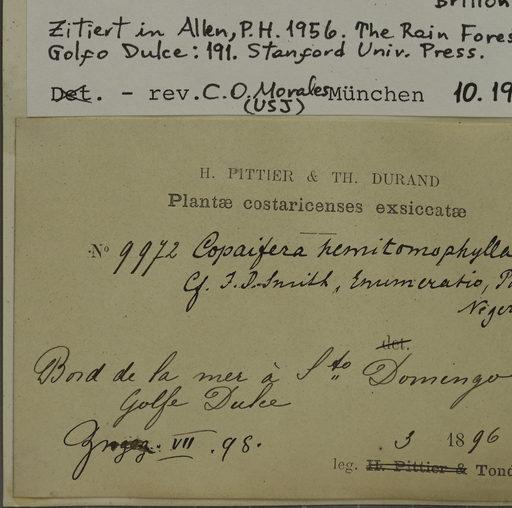 Zitiert in Allen, P.H. 1956. The Rain Fores
Golfo Dulce: 191. Stanford Univ. Press.
Det. - rev. C.O. Morales München 10.19
(USJ)
H. PITTIER & TH. DURAND
Plantæ costaricenses exsiccatæ
No 9972 Copaifera hemitomophylla
Cf. J.D. Smith, Enumeratio, P
Niger
det.
Bord de la mer à Sto Domingo
Golfe Dulce
VII. 98.
3 1896
leg. H. Pittier & Tond